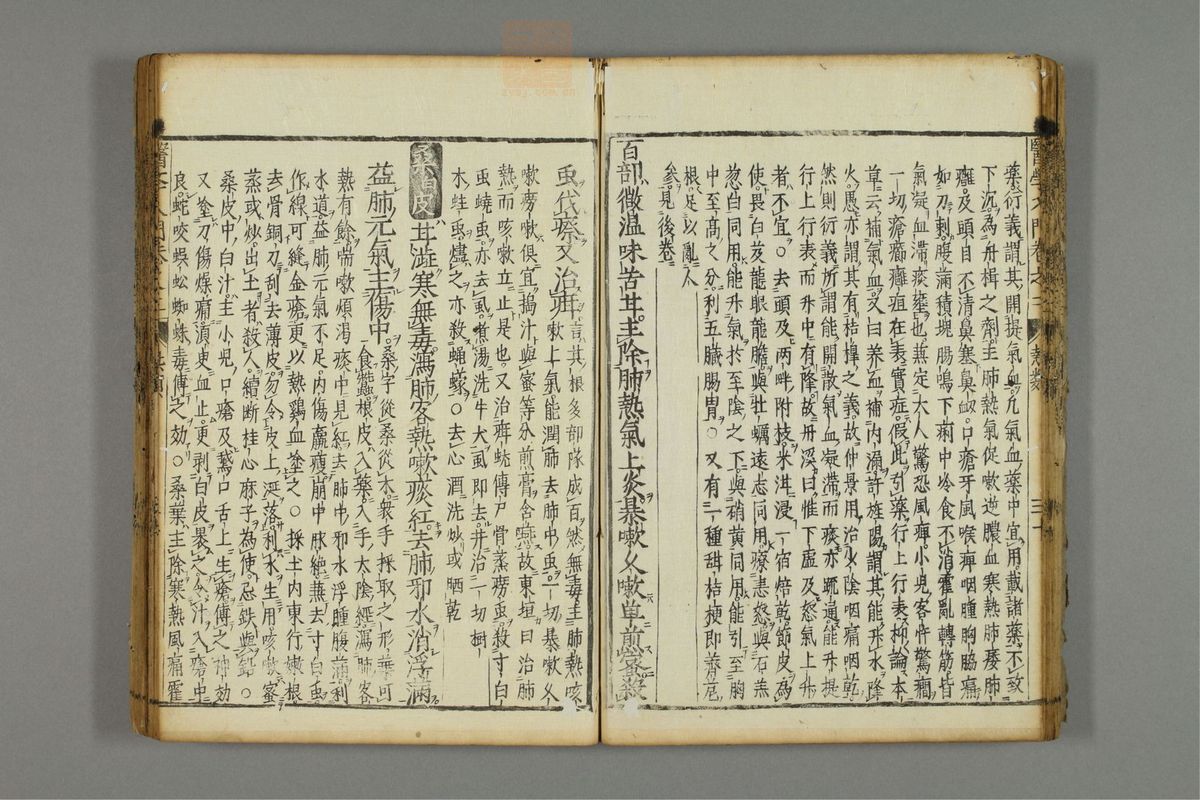 藥衍義謂其開提氣血凢氣血藥中宜用載諸藥不致
下沉為舟楫之劑主肺熱氣促嗽逆膿血寒熱肺痿肺
癰及頭目不清鼻塞鼻衂口瘡牙風喉痺咽腫胸脇痛
如刀刺腹滿積塊腸鳴下痢中冷食不消霍亂轉筋皆
氣凝血滯痰壅也兼定大人驚恐風痺小兒客忤驚癇
一切瘡癰癤疽在表實症假此引藥行上行表抑論本
草云補氣血又曰養血補內漏許旌陽謂其能升水降
火愚亦謂其有桔槔之義故仲景用治少陰咽痛咽乾
然則衍義所謂能開散氣血凝滯而痰亦疏通能升提
行上行表而升中有降故丹溪曰惟下虛及怒氣上升
者不宜○去頭及兩畔附枝米泔浸一宿焙乾節皮為
使畏白芨龍眼龍膽與牡蠣遠志同用療恚怒與石羔
忽白同用能升氣於至陰之下與硝黃同用能引至胸
中至高之分利五臟腸胃○又有一種甜桔梗即薺苨
根足以亂人
參見後卷
百部微溫味苦甘主除肺熱氣上炎暴嗽久嗽單煎蜜殺
䖝伐瘵又治疳言其根多部隊成百然無毒主肺熱咳
嗽上氣能潤肺去肺中䖝一切暴嗽久
嗽癆嗽俱宜搗汁與蜜等分煎膏含嚥故東垣曰治肺
熱而咳嗽立止是也又治疳蚘傳尸骨蒸癆䖝殺寸白
䖝蟯䖝亦去虱煮湯洗牛犬虱即去并治一切樹
木蛀䖝燼之亦殺蝿蠓○去心酒洗炒或晒乾
桑根皮甘澁寒無毒瀉肺客熱嗽痰紅去肺邪水消浮滿
益肺元氣主傷中桑字從桑從木衆手採取之形華可
食蠶根皮入藥入手太陰經瀉肺客
熱有餘喘嗽煩渴痰中見紅去肺中邪水浮腫腹滿利
水道益肺元氣不足內傷羸瘦崩中脉絕兼去寸白䖝
作線可縫金瘡更以熱鷄血塗之○採土內東行嫩根
去骨銅刀刮去薄皮勿令皮上涎落利水生用咳嗽蜜
蒸或炒出土者殺人續斷桂心麻子為使忌鉄與鉛○
桑皮中白汁主小兒口瘡及鵞口舌上生瘡傅之神効
又塗刀傷燥痛湏臾血止更剥白皮裹之令汁入瘡中
良蛇咬蜈蚣蜘蛛毒傅之効○桑葉主除寒熱風痛霍